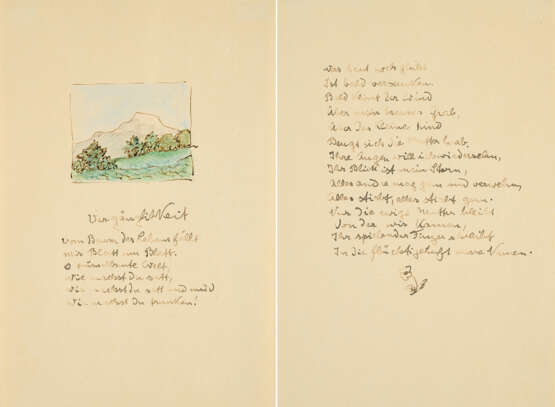 Vergänglichkeit
Vom Baum des Lebens fällt
Mir Blatt um Blatt.
O taumelbunte Welt,
Wie machst du satt,
Wie machst du satt und müd
Wie machst du trunken!
Was heut noch glüht
Ist bald versunken.
Bald klirrt der Wind
Über mein braunes Grab,
Über das kleine Kind
Beugt sich die Mutter herab.
Ihre Augen will ich wiedersehn,
Ihr Blick ist mein Stern,
Alles andre mag gehn und verwehn,
Alles stirbt, alles stirbt gern.
Nur die ewige Mutter bleibt
Von der wir kamen,
Ihr spielender Finger schreibt
In die flüchtige Luft unsre Namen.